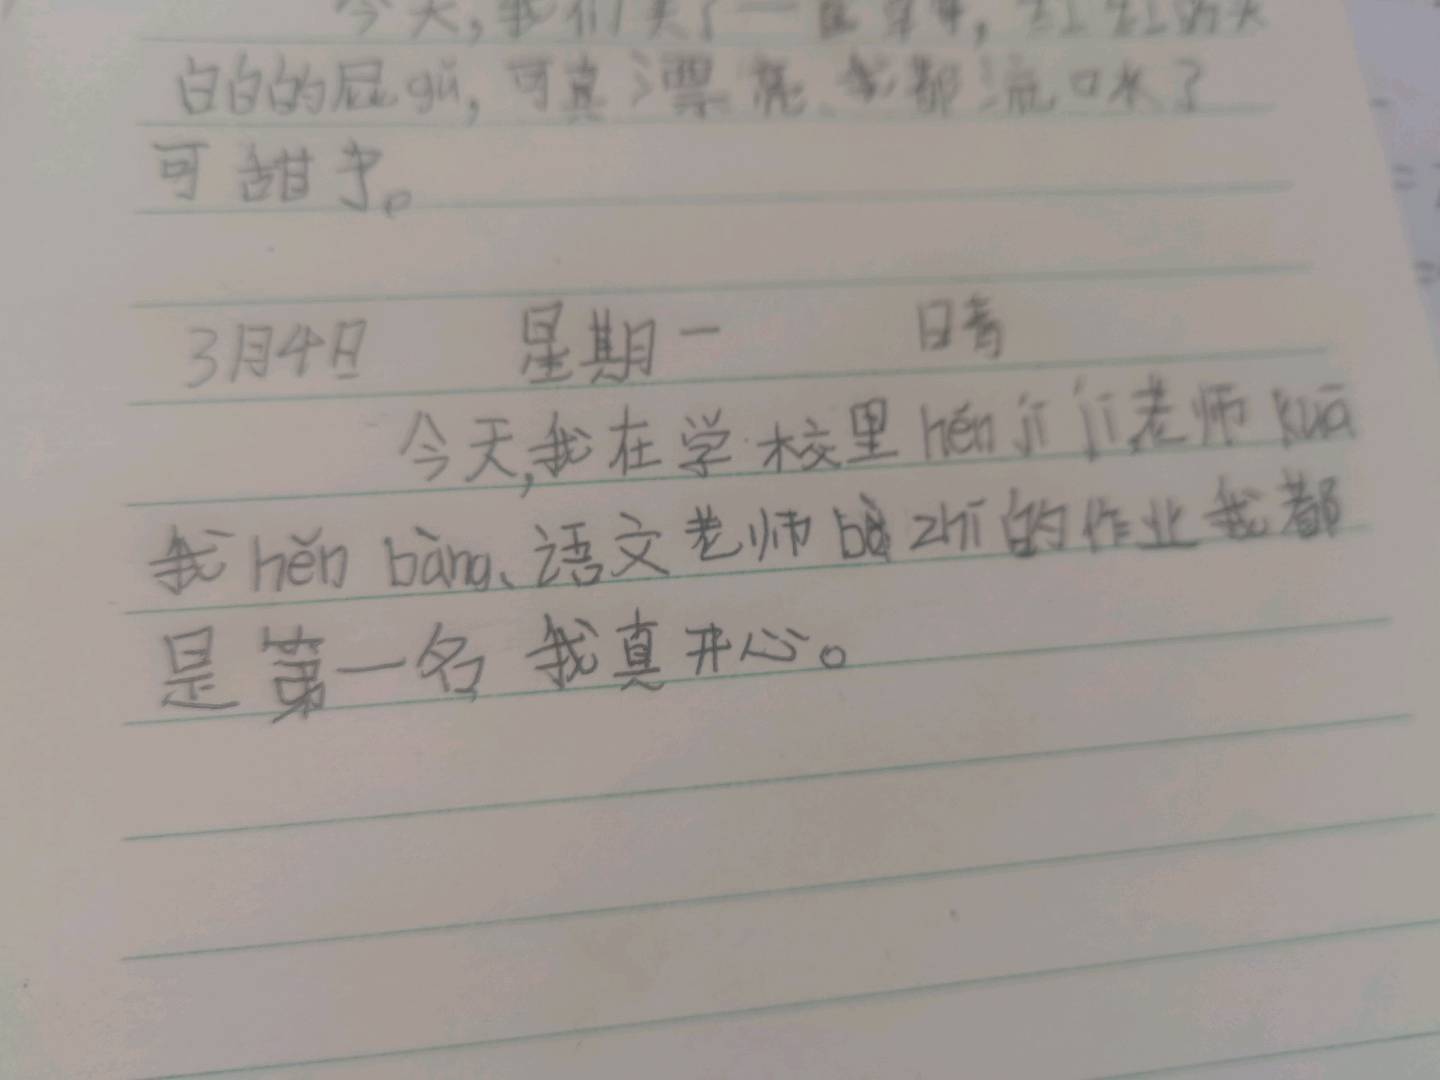 今天,我们买了一
白白的屁gǔ,可真漂亮、我都流口水了
可甜了。
3月4日 星期一 日青
今天,我在学校里hén jī jí老师kuā
我hěn bàng、语文老师bù zhī的作业我都
是第一名 我真开心。